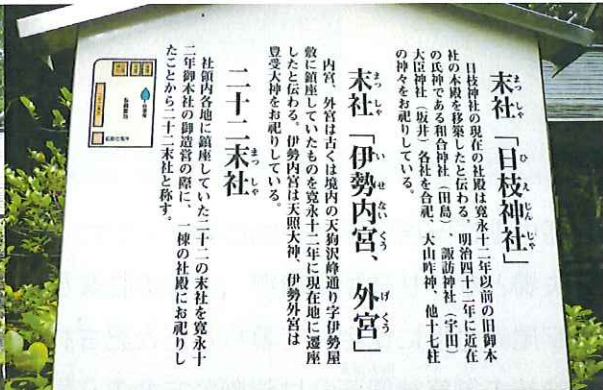 末社「日枝神社」
まっしゃ ひえじんじゃ
日枝神社の現在の社殿は寛永十二年以前の旧御本
社の本殿を移築したと伝わる。明治四十二年に近在
の氏神である和合神社（田島）、諏訪神社（宇田）
大臣神社（坂井）各社を合祀、大山咋神、他十七柱
の神々をお祀りしている。
末社「伊勢内宮、外宮」
まっしゃ いせないくう げくう
内宮、外宮は古くは境内の天狗沢峰通り字伊勢屋
敷に鎮座していたものを寛永十二年に現在地に遷座
したと伝わる。伊勢内宮は天照大神、伊勢外宮は
豊受大神をお祀りしている。
二十二末社
まっしゃ
社領内各地に鎮座していた二十二の末社を寛永十
二年御本社の御造営の際に、一棟の社殿にお祀りし
たことから二十二末社と称す。